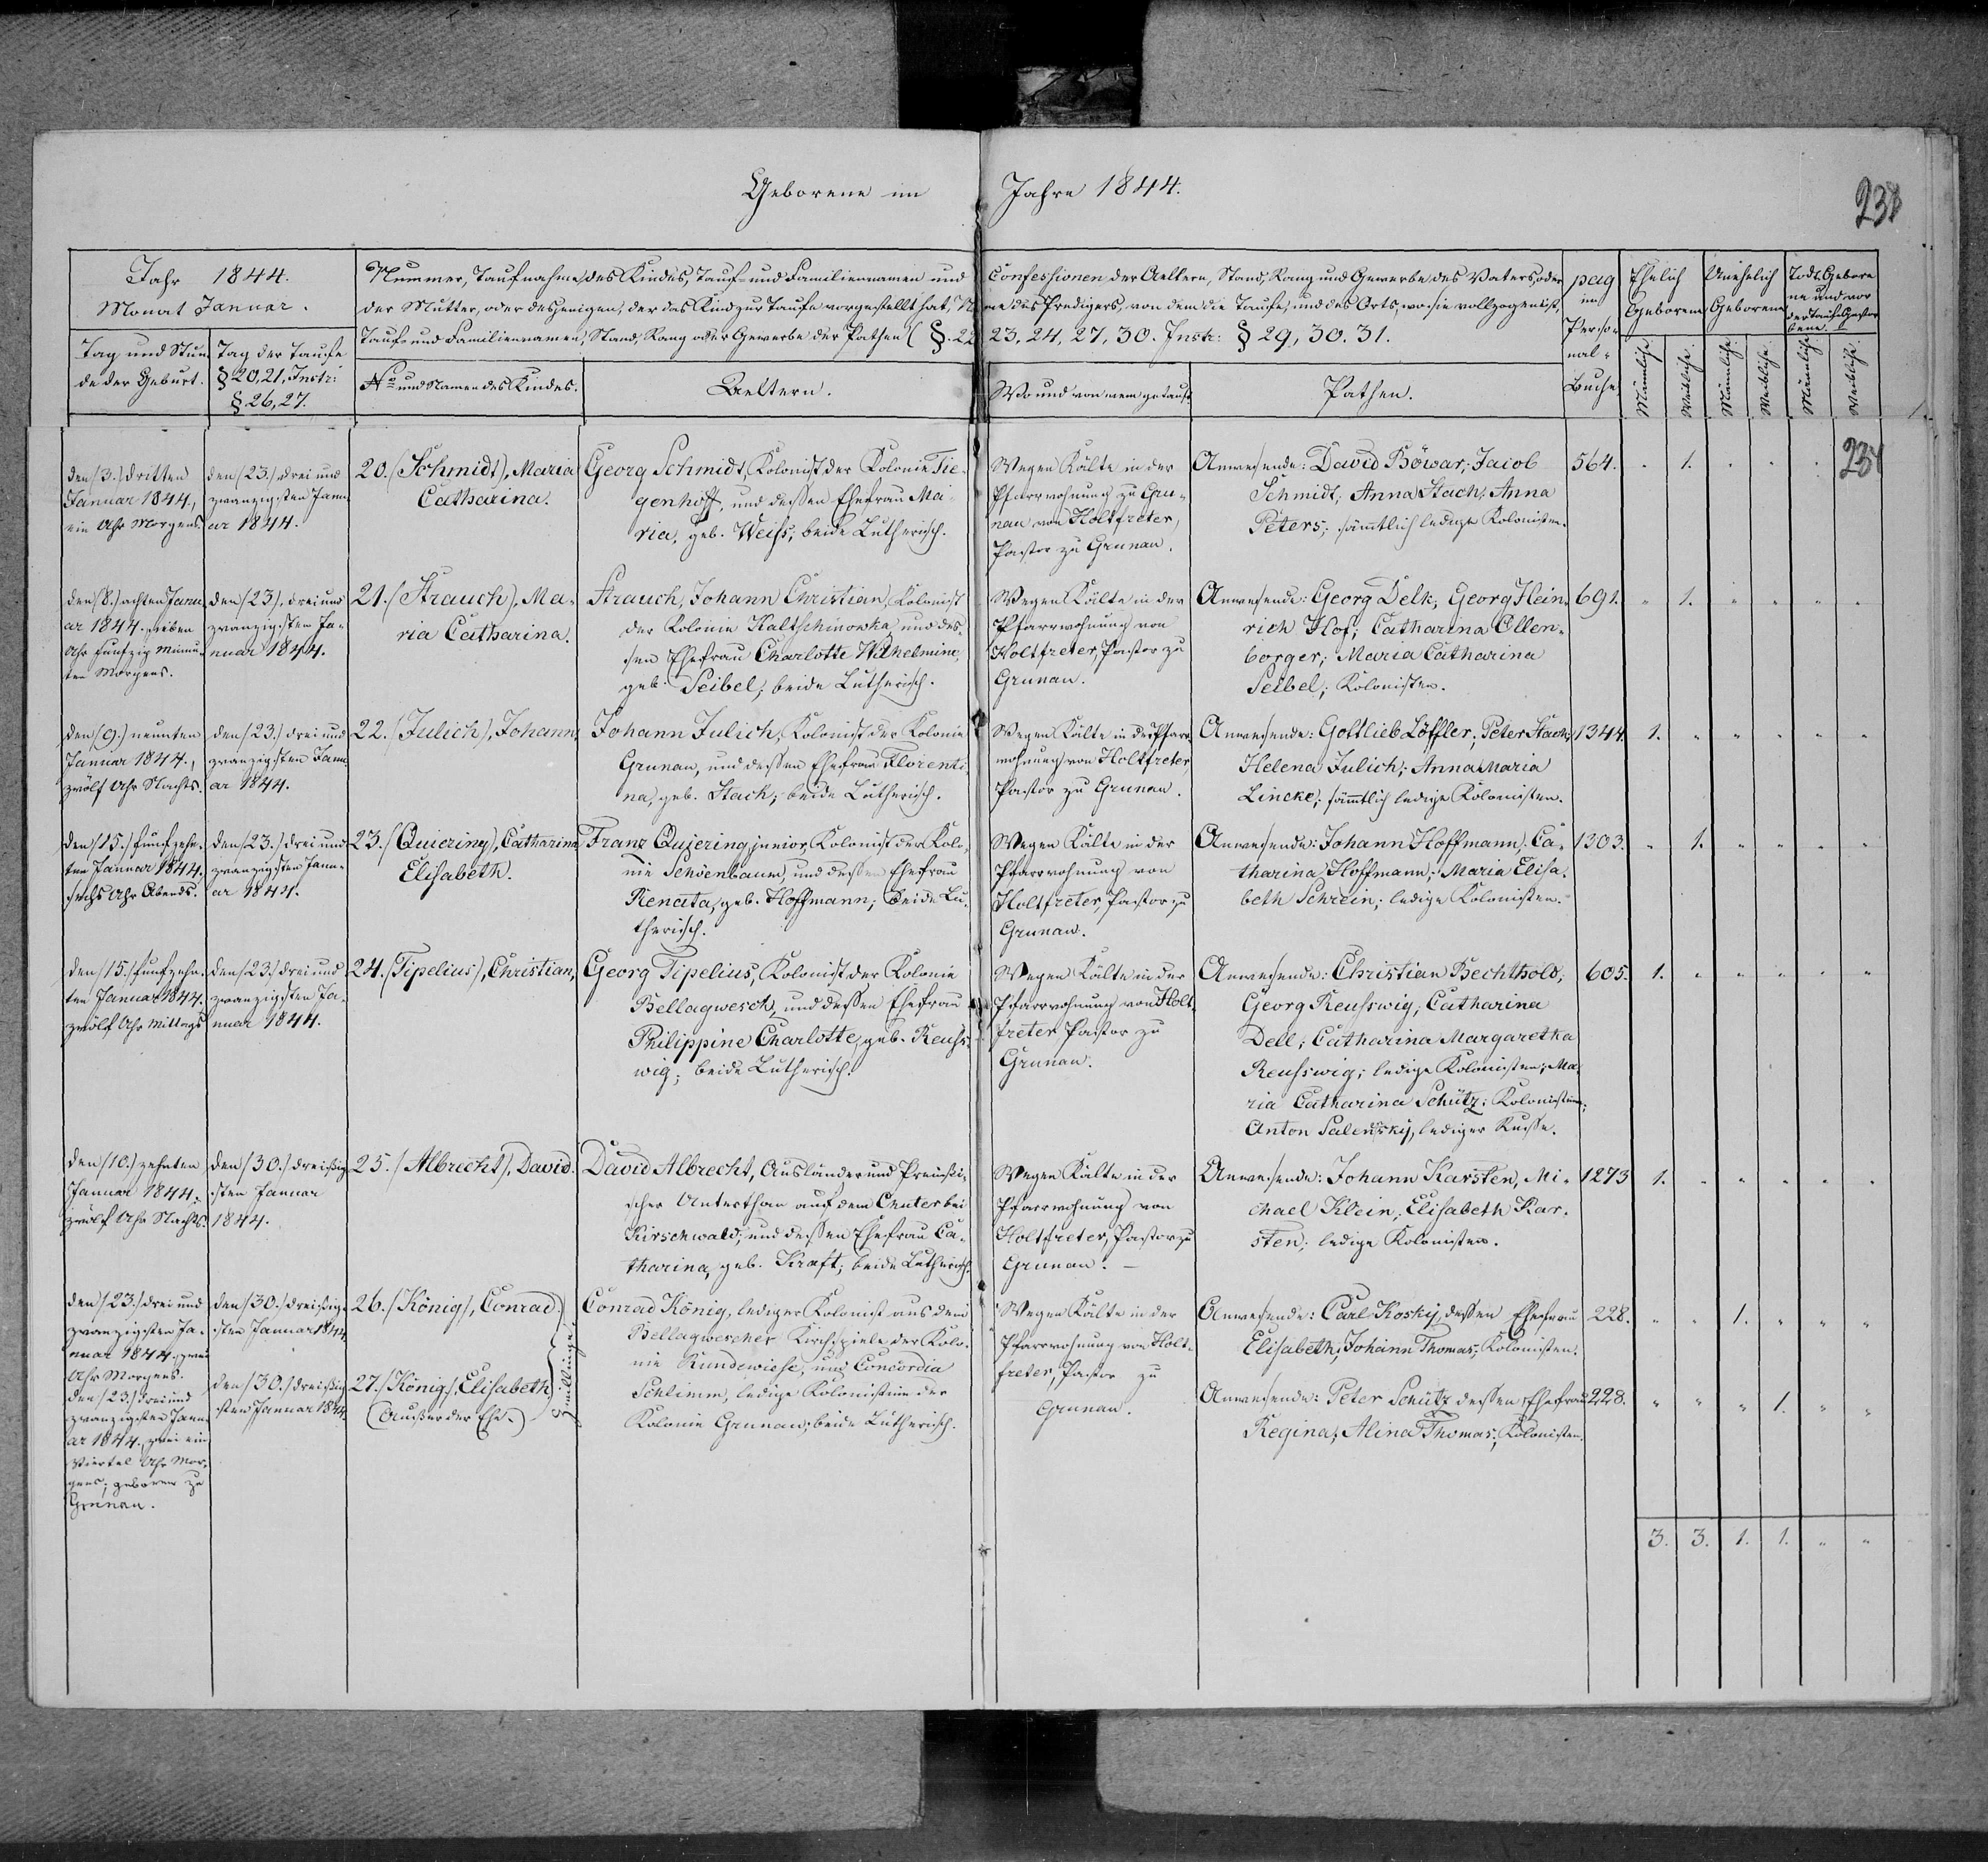 Geborene im Jahre 1844.
238
Jahr 1844.
Monat Januar.
Tag und Stun
de der Geburt.
Tag der Taufe
§ 20, 21, Instr:
§. 26, 27.
Nummer, Taufnahme des Kindes, Tauf- und Familiennamen und Confessionen der Aeltern, Stand, Rang und Gewerbe des Vaters, oder
der Mutter, oder desjenigen, der das Kind zur Taufe vorgestellt hat, Na me des Predigers, von dem die Taufe, und des Orts, wo sie vollzogen ist,
Tauf- und Familiennamen, Stand, Rang oder Gewerbe der Pathen (§. 22 23, 24, 27, 30. Instr: § 29, 30. 31.
No und Namen des Kindes.
Aeltern.
Wo und von wem getauft.
Pathen.
pag
im
Perso-
nal-
Buche
Ehelich
Geborene
Unehelich
Geborene
Todt Gebore
ne und vor
der Taufe Gestor
bene.
Männliche
Weibliche
Männliche
Weibliche
Männliche
Weibliche
den (3.) dritten
Januar 1844.,
ein Uhr Morgens.
den (23.) drei und
zwanzigsten Janu
ar 1844.
20. (Schmidt), Maria
Catharina.
Georg Schmidt, Kolonist der Kolonie Tie-
genhoff, und dessen Ehefrau Ma-
ria, geb. Weiss; beide Lutherisch.
Wegen Kälte in der
Pfarrwohnung zu Gru-
nau von Holtfreter,
Pastor zu Grunau.
Anwesende: David Böwar; Jacob
Schmidt; Anna Stach; Anna
Peters; sämtlich ledige Kolonisten.
564. " 1. " " "
234
den (8.) achten Janu
ar 1844. sieben
Uhr fünfzig Minu-
ten Morgens.
den (23.) drei und
zwanzigsten Ja-
nuar 1844.
21. (Strauch), Ma-
ria Catharina.
Strauch, Johann Christian, Kolonist
der Kolonie Kaltschinowka und des-
sen Ehefrau Charlotte Wilhelmine,
geb. Seibel; beide Lutherisch.
Wegen Kälte in der
Pfarrwohnung von
Holtfreter, Pastor zu
Grunau.
Anwesende: Georg Delk; Georg Hein-
rich Hof; Catharina Ellen-
borger; Maria Catharina
Seibel; Kolonisten.
691. " 1. " " " "
den (9.) neunten
Januar 1844.,
zwölf Uhr Nachts.
den (23.) drei und
zwanzigsten Janu
ar 1844.
22. (Julich), Johann.
Johann Julich, Kolonist der Kolonie
Grunau, und dessen Ehefrau Florenti-
na, geb. Stach; beide Lutherisch.
Wegen Kälte in der Pfarr-
wohnung von Holtfreter,
Pastor zu Grunau.
Anwesende: Gottlieb Löffler; Peter Stach;
Helena Julich; Anna Maria
Lincke; sämmtlich ledige Kolonisten.
1344. 1. " " " " "
den (15.) fünfzehn-
ten Januar 1844.
sechs Uhr Abends.
den (23.) drei und
zwanzigsten Janu-
ar 1844.
23. (Quiering), Catharina
Elisabeth.
Franz Quiering junior, Kolonist der Kolo-
nie Schöenbaum, und dessen Ehefrau
Renata, geb. Hoffmann; beide Lu-
therisch.
Wegen Kälte in der
Pfarrwohnung von
Holtfreter, Pastor zu
Grunau.
Anwesende: Johann Hoffmann; Ca-
tharina Hoffmann; Maria Elisa-
beth Schrein; ledige Kolonisten.
1303. " 1. " " " "
den (15.) fünfzehn-
ten Januar 1844.
zwölf Uhr Mittags
den (23.) drei und
zwanzigsten Ja-
nuar 1844.
24. (Tipelius), Christian,
Georg Tipelius, Kolonist der Kolonie
Bellagwesch, und dessen Ehefrau
Philippine Charlotte, geb. Reuss-
wig; beide Lutherisch.
Wegen Kälte in der
Pfarrwohnung von Holt-
freter Pastor zu
Grunau.
Anwesende: Christian Bechthold;
Georg Reusswig; Catharina
Dell; Catharina Margaretha
Reusswig; ledige Kolonisten; Ma-
ria Catharina Schütz; Kolonistin;
Anton Salensky, lediger Russe.
605. 1. " " " " "
den (10.) zehnten
Januar 1844.
zwölf Uhr Nachts.
den (30.) dreißig
sten Januar
1844.
25. (Albrecht), David.
David Albrecht, Ausländer und Preußi-
scher Unterthan auf dem Chutor bei
Kirschwald; und dessen Ehefrau Ca-
tharina, geb. Kraft; beide Lutherisch.
Wegen Kälte in der
Pfarrwohnung von
Holtfreter, Pastor zu
Grunau. —
Anwesende: Johann Karsten, Mi-
chael Klein; Elisabeth Kar-
sten; ledige Kolonisten.
1273 1. " " " " "
den (23.) drei und
zwanzigsten Ja-
nuar 1844. zwei
Uhr Morgens.
den (30.) dreißig-
sten Januar 1844.
26. (König), Conrad.
Conrad König, lediger Kolonist aus dem
Bellagwescher Kirchspiele der Kolo-
nie Rundewiese, und Concordia
Schlimm, ledige Kolonistin der
Kolonie Grunau; beide Lutherisch.
Wegen Kälte in der
Pfarrwohnung von Holt-
freter, Pastor zu
Grunau.
Anwesende: Carl Kosky, dessen Ehefrau
Elisabeth; Johann Thomas; Kolonisten.
228. " " 1. " " "
den (23.) drei und
zwanzigsten Janu
ar 1844., zwei ein
Viertel Uhr Mor-
gens; geboren zu
Grunau.
den (30.) dreißig
sten Januar 1844.
27. (König), Elisabeth
(Außer der Ehe.)
Zwillinge.
Anwesende: Peter Schütz dessen Ehefrau
Regina; Alina Thomas; Kolonisten.
228. " " " 1. " "
3. 3. 1. 1. " "